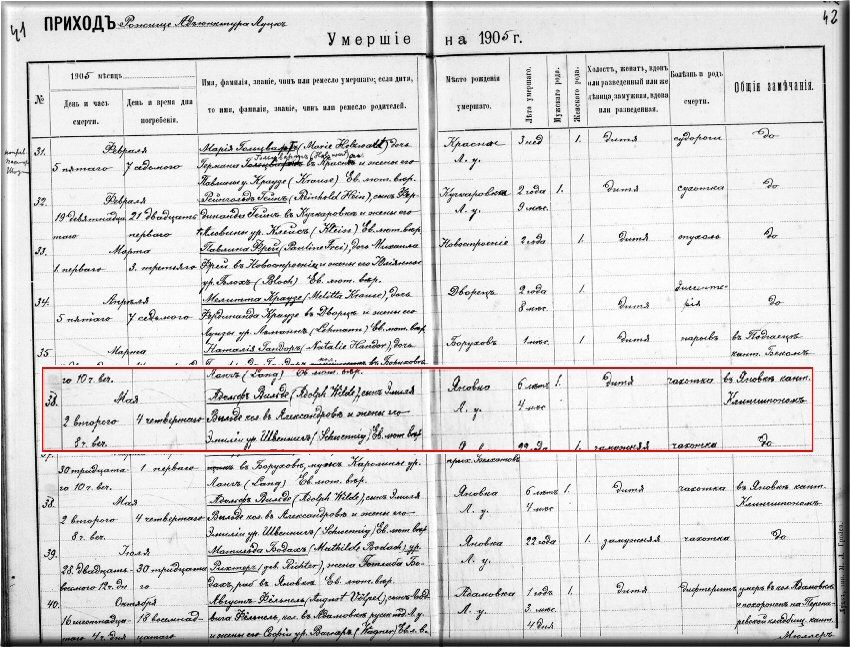 41
ПРИХОДЪ Рожище Адъюнктура Луцкъ
42
Умершіе на 1905 г.
№
1905 мѣсяцъ.
День и часъ смерти.
День и время дня погребенія.
Имя, фамилія, званіе, чинъ или ремесло умершаго; если дитя,
то имя, фамилія, званіе, чинъ или ремесло родителей.
Мѣсто рожденія умершаго.
Лѣта умершаго.
Мужскаго рода.
Женскаго рода.
Холостъ, женатъ, вдовъ или разведенный или же дѣвица, замужняя, вдова или разведенная.
Болѣзнь и родъ смерти.
Общія замѣчанія.
31. Февраля Марія (Marie) дочь Красная 3 нед 1. дитя судороги до
5 пятаго 7 седьмого Германа въ и жены его Л. у.
Павлины ур. Краузе (Krause) Ев. лют. вѣр.
32. Февраля Рейнгольдъ Гейнъ (Reinhold Hein), сынъ Фер- 2 года 1. дитя сухотка до
19 девятнадца 21 двадцать динанда Гейна въ и жены его Л. у. 9 мѣс.
таго перваго ур. Клейсъ (Kleiss) Ев. лют. вѣр.
33. Марта Павлина Фрей (Pauline), дочь Михаила Новостроеніе 2 года 1. дитя опухоль до
1. перваго 3. третьяго Фрей въ Новостроеніи и жены его Юліанны
ур. Блохъ (Bloch) Ев. лют. вѣр.
34. Апрѣля Мелитта Краузе (Melitta Krause), дочь Дворецъ 2 года 1.
5 пятаго 7 седьмого Фердинанда Краузе въ Дворецъ и жены его 8 мѣс. дитя дифтерія до
Луизы ур. Леманнъ (Lehmann) Ев. лют. вѣр.
35 Марта Наталія Гандоръ (Natalie Handor), дочь Борухов 1. 1. дитя нарывъ въ
кант.
го 10 ч. веч. Лангъ (Lang) Ев. лют. вѣр.
38. Мая Адольфъ Вильде (Adolph Wilde), сынъ Эмиля Яновка 6 лѣтъ 1. дитя чахотка въ Яновкѣ кант.
2 второго 4 четвертаго Вильде кол. въ Александровкѣ и жены его Л. у. 4 мѣс Клингшпономъ.
8 ч. веч. Эмиліи ур. Швеннигъ (Schwennig) Ев. лют. вѣр.
22 года замужняя чахотка до
30 тридцата 1 перваго въ Боруховѣ, мужъ Каролины ур.
го 10 ч. веч. Лангъ (Lang) Ев. лют. вѣр.
38. Мая Адольфъ Вильде (Adolph Wilde), сынъ Эмиля Яновка 6 лѣтъ 1. дитя чахотка въ Яновкѣ кант.
2 второго 4 четвертаго Вильде кол. въ Александровкѣ и жены его Л. у. 4 мѣс Клингшпономъ.
8 ч. веч. Эмиліи ур. Швеннигъ (Schwennig) Ев. лют. вѣр.
39. Іюля Матильда Бодахъ (Mathilde Bodach), ур. Яновка 22 года 1. замужняя чахотка до
28. двадцать 30 тридцата Рихтеръ (geb. Richter), жена Готлиба Бо- Л. у.
восьмого 12 ч. дн го дахъ, въ Яновкѣ Ев. лют. вѣр.
40. Октября Августъ Фельпель (August Völpel), сынъ Людвига Адамовка 1 годъ 1. дитя дифтеритъ умеръ въ кол. Адамовкѣ
16 шестнадца 18 восемнад- Фельпель, кол. въ Адамовкѣ Л. у. 3 мѣс. и похороненъ на
таго 4 ч. дня цатаго и жены его Софіи ур. Вагнеръ (Wagner) Ев. л. в. 4 дня кладбищ. кант.
Мюллеръ